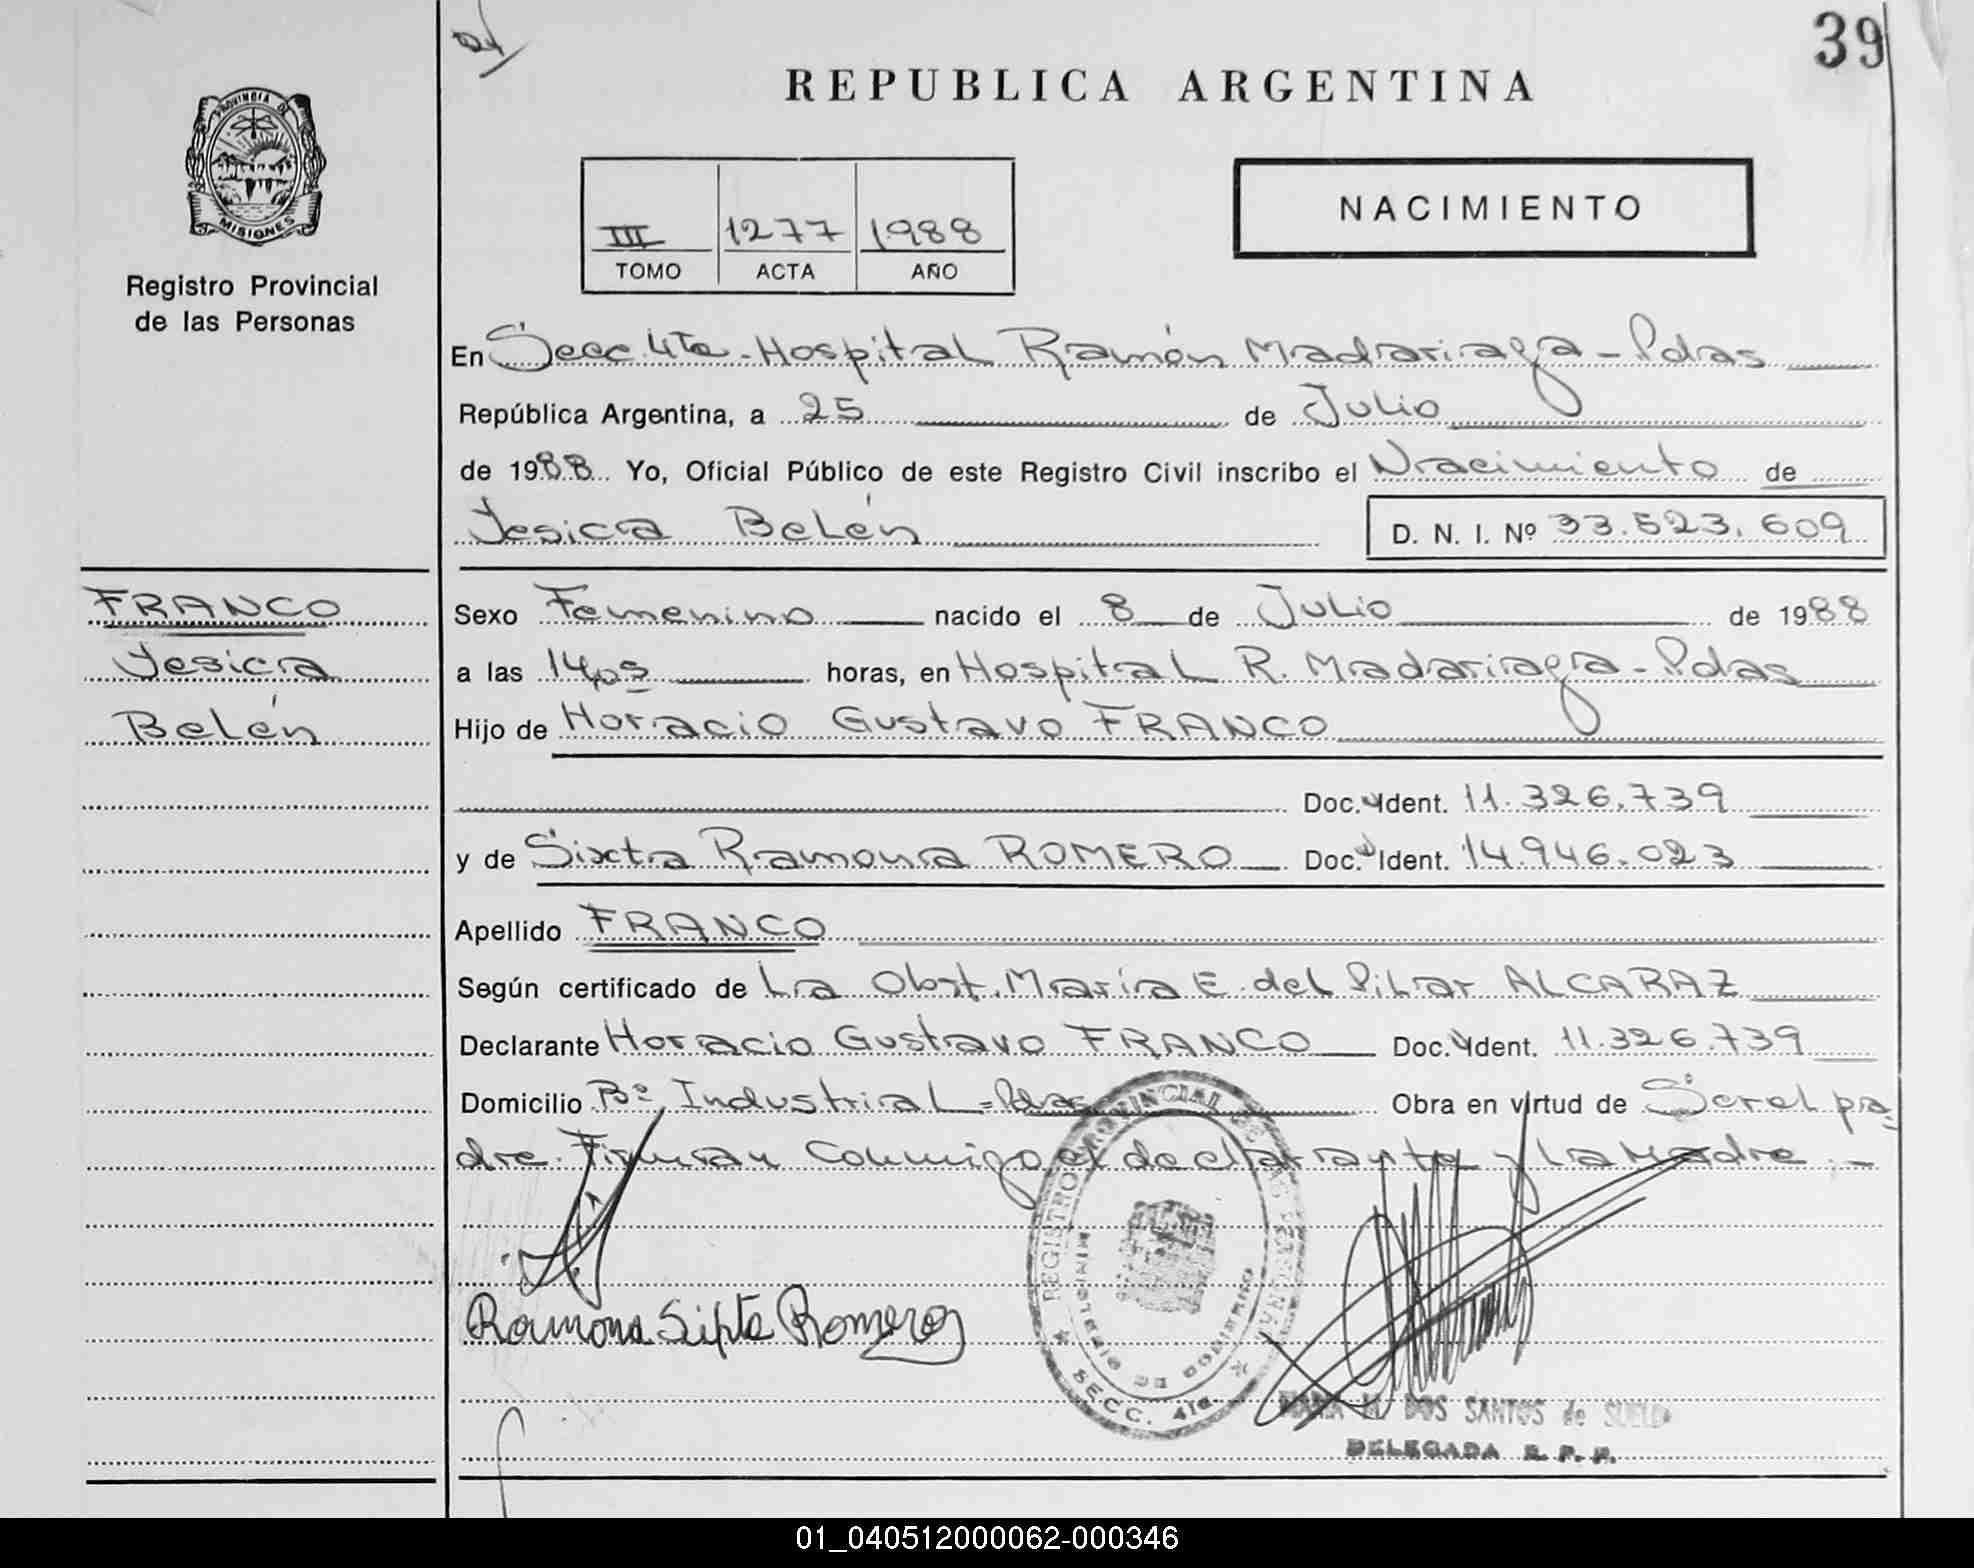 39
REPUBLICA ARGENTINA
PROVINCIA DE
MISIONES
Registro Provincial
de las Personas
III 1277 1988
TOMO ACTA AÑO
NACIMIENTO
En Secc. 4ta - Hospital Ramón Madariaga - Pdas
República Argentina, a 25 de Julio
de 1988 Yo, Oficial Público de este Registro Civil inscribo el Nacimiento de
Yesica Belén D. N. I. Nº 33.523.609
FRANCO
Yesica
Belén
Sexo Femenino nacido el 8 de Julio de 1988
a las 14,05 horas, en Hospital R. Madariaga - Pdas
Hijo de Horacio Gustavo FRANCO
Doc. Ident. 11.326.739
y de Sixta Ramona ROMERO Doc. Ident. 14.946.023
Apellido FRANCO
Según certificado de La Obst. María E. del Pilar ALCARAZ
Declarante Horacio Gustavo FRANCO Doc. Ident. 11.326.739
Domicilio Bº Industrial - Pdas Obra en virtud de Ser el pa-
dre. Firman Conmigo el declarante y La Madre. -
Ramona Sixta Romero
REGISTRO PROVINCIAL DE LAS PERSONAS
MINISTERIO DE GOBIERNO
SECC. 4ta
M. DOS SANTOS de
DELEGADA R. P. P.
01_040512000062-000346